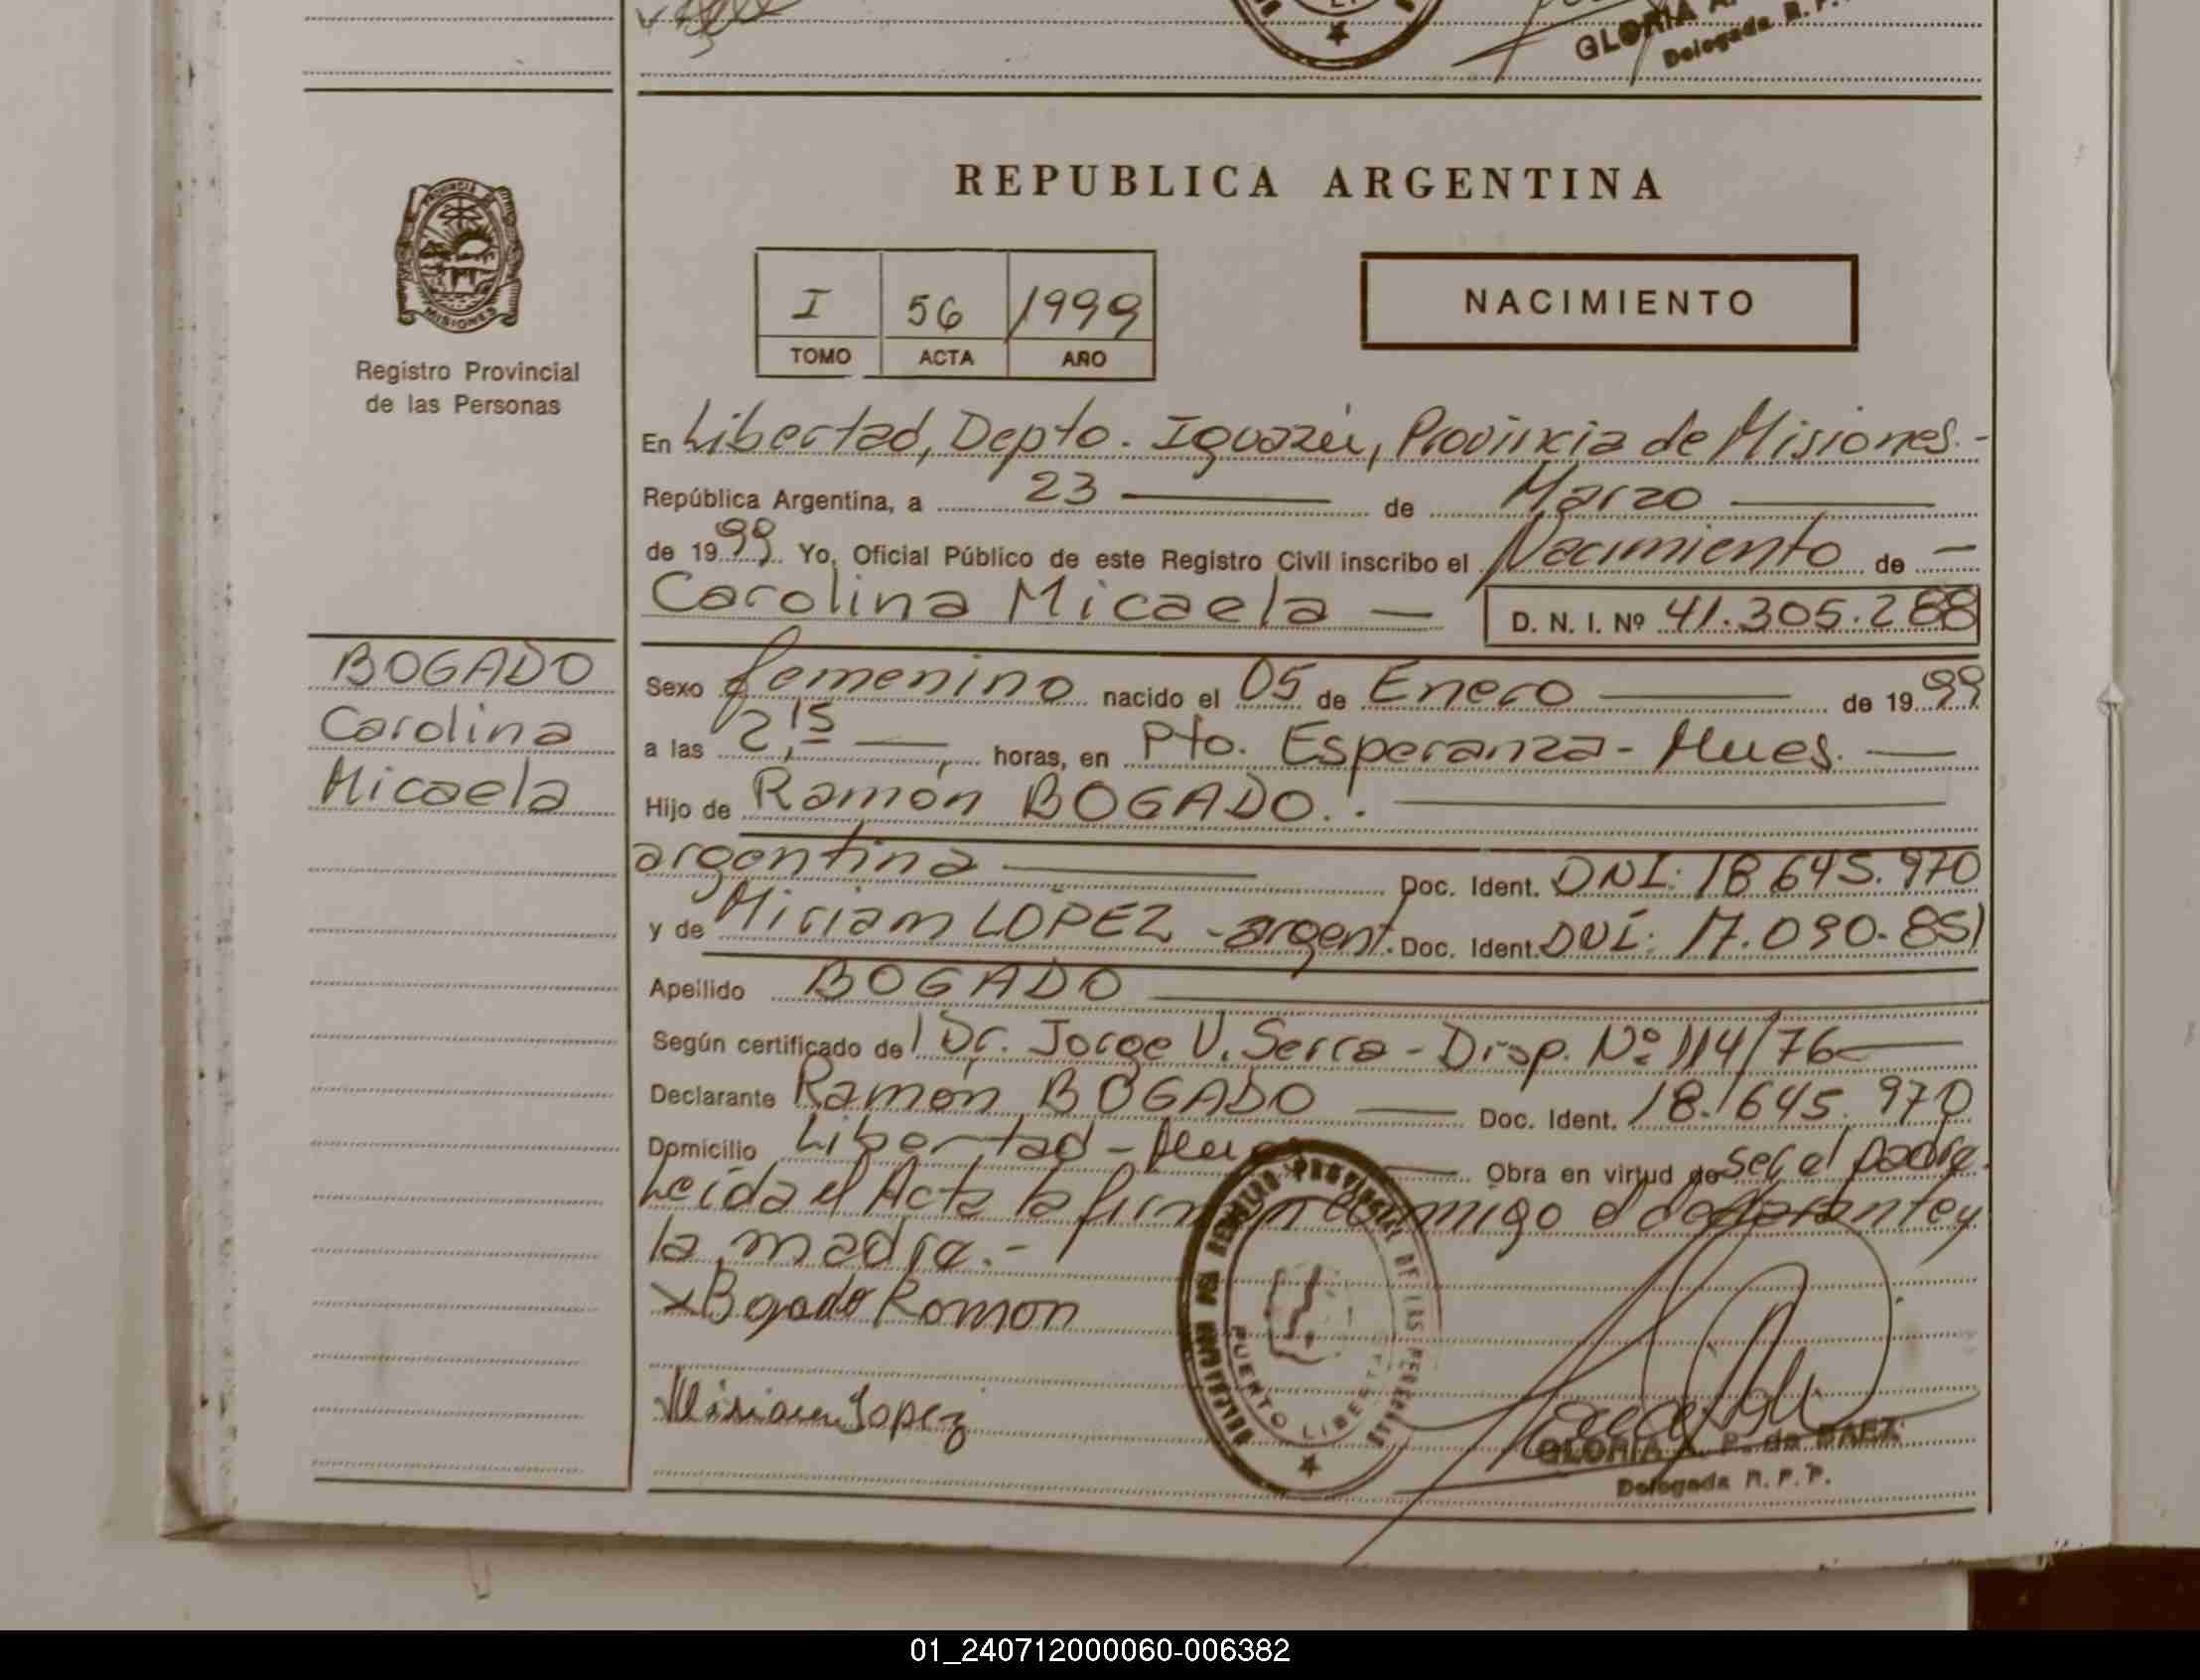 GLORIA A.
Delegada R. P.
PROVINCIA
MISIONES
Registro Provincial
de las Personas
BOGADO
Carolina
Micaela
REPUBLICA ARGENTINA
I 56 1999
TOMO ACTA AÑO
NACIMIENTO
En Libertad, Depto. Iguazú, Provincia de Misiones.-
República Argentina, a 23 — de Marzo —
de 1999 Yo, Oficial Público de este Registro Civil inscribo el Nacimiento de —
Carolina Micaela — D. N. I. Nº 41.305.288
Sexo femenino nacido el 05 de Enero — de 1999
a las 2,15 — horas, en Pto. Esperanza - Mnes. —
Hijo de Ramón BOGADO.-
argentina — Doc. Ident. DNI: 18.645.970
y de Miriam LOPEZ - argent. Doc. Ident. DNI: 17.090.851
Apellido BOGADO —
Según certificado del Dr. Jorge V. Serra - Disp. Nº 114/76 —
Declarante Ramón BOGADO — Doc. Ident. 18.645.970
Domicilio Libertad - — Obra en virtud de ser el padre.
Leída el Acta la firman conmigo el declarante y
la madre.-
x Bogado Ramon
Miriam Lopez
DELEGACION DEL REGISTRO PROVINCIAL DE LAS PERSONAS
PUERTO LIBERTAD
GLORIA A. P. de PAEZ
Delegada R. P. P.
01_240712000060-006382